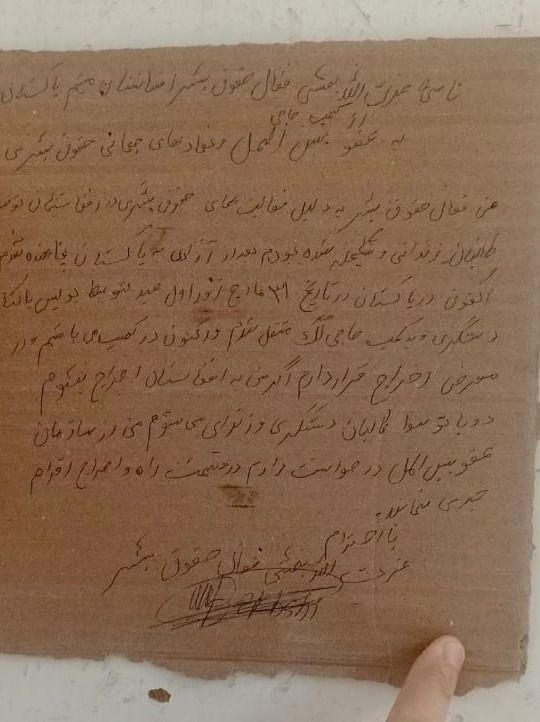 نامه عزت الله بخشی فعال حقوق بشر افغانستان مقیم پاکستان
از کمپ حاجی
به عفو بین المل و نهادهای جهانی حقوق بشری
من فعال حقوق بشر به دلیل فعالیت های حقوق بشری در افغانستان توسط
طالبان زندانی و شکنجه شده بودم بعد از آزادی به پاکستان پناهنده شدم
اکنون در پاکستان در تاریخ ۳۱ مارچ روز اول عید توسط پولیس
دستگیری و به کمپ حاجی منتقل شدم و اکنون در کمپ می باشم و در
معرض اخراج قرار دارم اگر من به افغانستان اخراج بشوم
دوباره توسط طالبان دستگیری و زندانی می شوم من از سازمان
عفو بین المل درخواست دارم در قسمت و اخراج اقدام
جدی نمایند.
با احترام
عزت الله بخشی فعال حقوق بشر